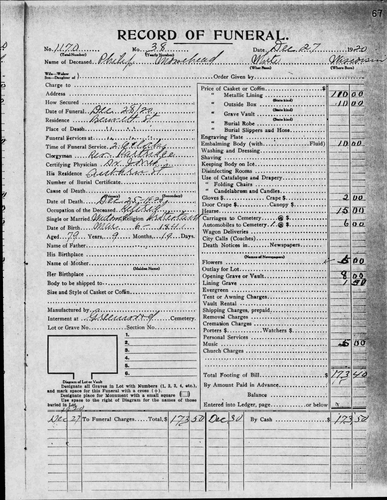 67
RECORD OF FUNERAL.
No. 1170 No. 38 Date Dec 27 1920
(Total Number) (Yearly Number)
Name of Deceased Philip Morehead White
(What Race) (Where Born)
Order Given by
Charge to
Address
How Secured
Date of Funeral Dec 28/20
Residence
Place of Death
Funeral Services at
Time of Funeral Service 2
Clergyman Rev
Certifying Physician Dr Jones
His Residence
Number of Burial Certificate
Cause of Death
Date of Death Dec 25 1920
Occupation of the Deceased Retired
Single or Married Religion
Date of Birth 6 1841
Aged 79 Years, 9 Months, 19 Days
Name of Father
His Birthplace
Name of Mother
(Maiden Name)
Her Birthplace
Body to be shipped to
Size and Style of Casket or Coffin
Manufactured by
Interment at Greenwood Cemetery
Lot or Grave No. Section No.
1
2
3
4
5
6
Diagram of Lot or Vault
Designate all Graves in Lot with Numbers (1, 2, 3, 4, etc.),
and mark space for this Funeral with a cross (+)
Designate place for Monument with a small square
Use space to the right of Diagram for the names of those
buried in Lot.
Price of Casket or Coffin
" Metallic Lining 110 00
" Outside Box 10 00
(State kind)
" Grave Vault
(State kind)
" Burial Robe
(State kind)
" Burial Slippers and Hose
Engraving Plate
Embalming Body (with Fluid) 10 00
Washing and Dressing
Shaving
Keeping Body on Ice
Disinfecting Rooms
Use of Catafalque and Drapery
" Folding Chairs
" Candelabrum and Candles
Gloves $ Crape $ 2 00
Door Crape $ Canopy $
Hearse 15 00
Carriages to Cemetery @ $
Automobiles to Cemetery 1 @ $ 6 00
Wagon Deliveries
City Calls (Coaches)
Death Notices in Newspapers
(Names of Newspapers)
Flowers 5 00
Outlay for Lot
Opening Grave or Vault 8 00
Lining Grave 1 50
Evergreen
Tent or Awning Charges
Vault Rental
Shipping Charges, prepaid
Removal Charges
Cremation Charges
Porters $ Watchers $
Personal Services
Music 5 00
Church Charges
Total Footing of Bill $
By Amount Paid in Advance
Balance $
Entered into Ledger, page or below
Dec 27 To Funeral Charges Total, $ 173 50 Dec 30 By Cash 173 50